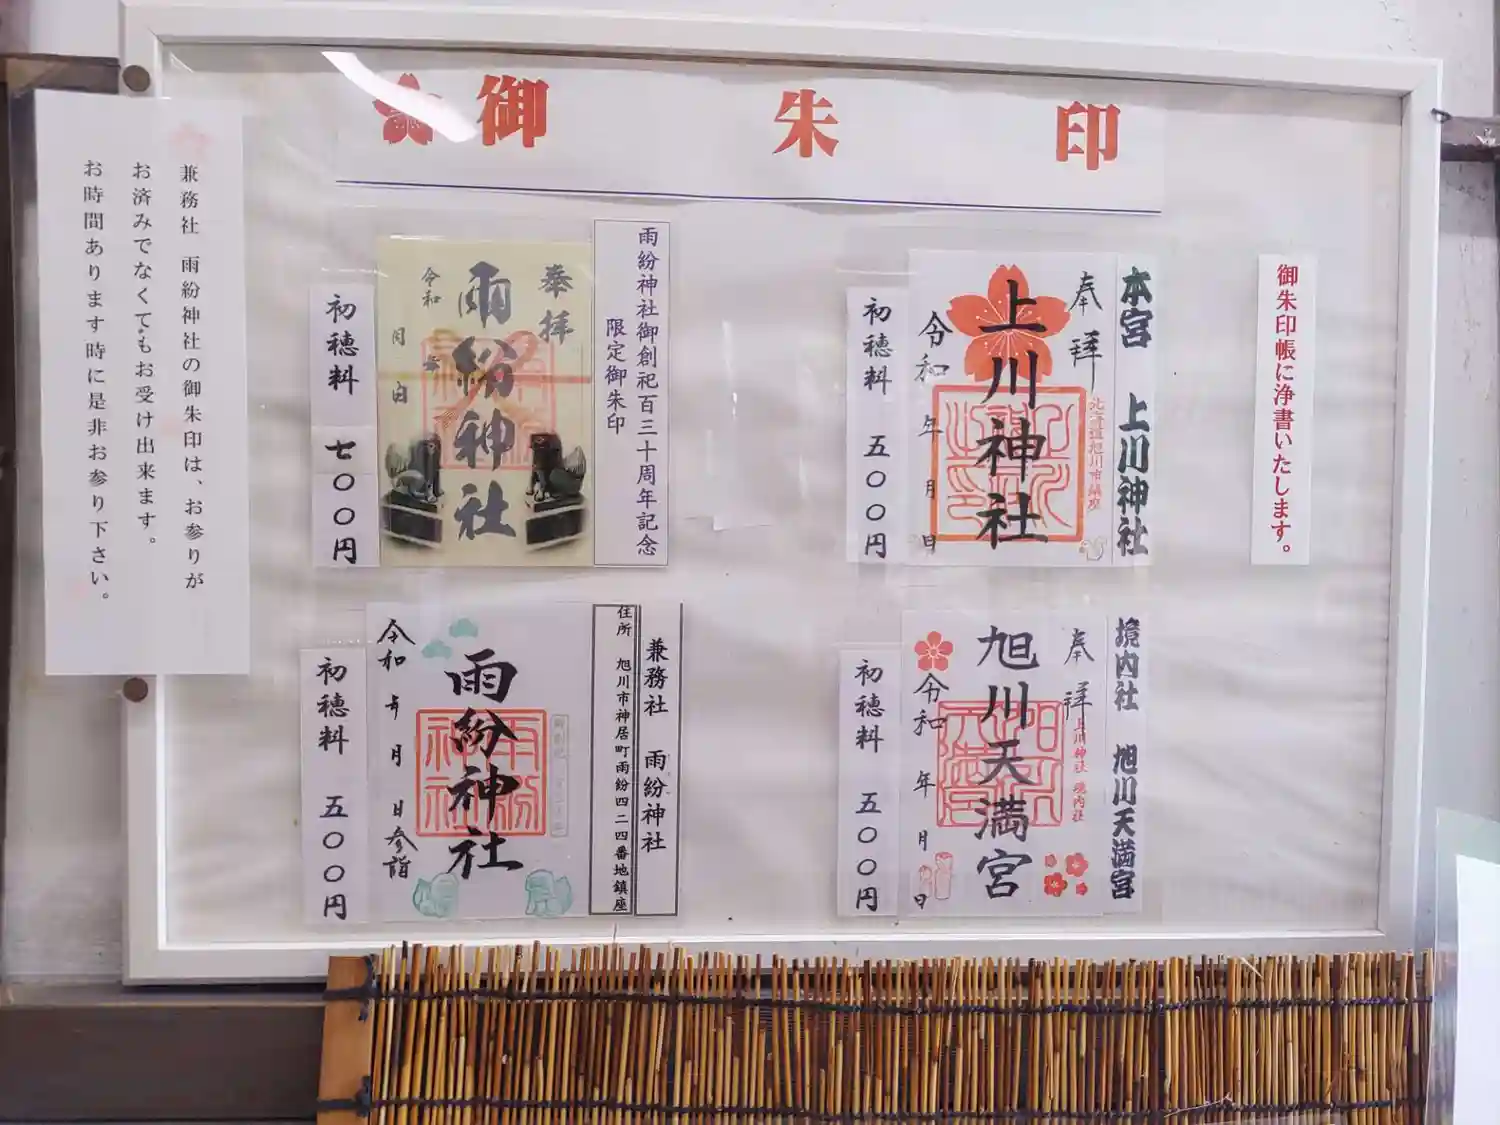 御朱印
御朱印帳に浄書いたします。
本宮 上川神社
奉拝
上川神社
北海道旭川市鎮座
令和 年 月 日
初穂料 五〇〇円
雨紛神社御創祀百三十周年記念
限定御朱印
奉拝
雨紛神社
令和 年
月 日
初穂料 七〇〇円
境内社 旭川天満宮
奉拝
上川神社 境内社
旭川天満宮
令和 年 月 日
初穂料 五〇〇円
兼務社 雨紛神社
住所 旭川市神居町雨紛四二四番地鎮座
雨紛神社
令和 年 月 日参詣
初穂料 五〇〇円
兼務社 雨紛神社の御朱印は、お参りが
お済みでなくてもお受け出来ます。
お時間あります時に是非お参り下さい。